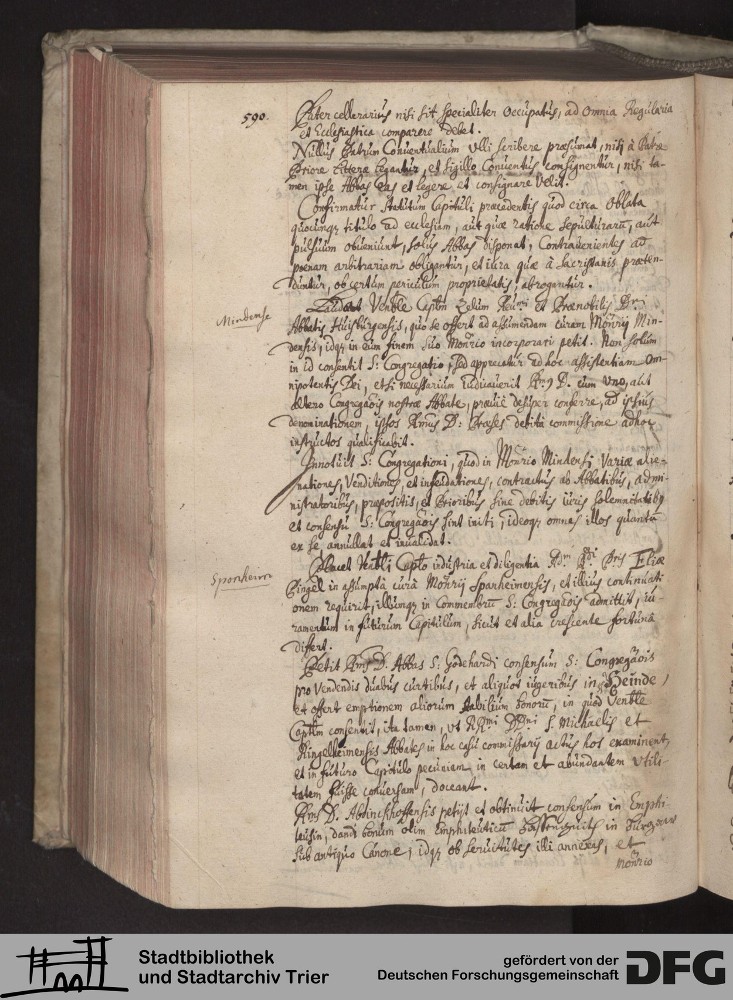 590.
Pater cellerarius nisi sit specialiter occupatus, ad omnia Regularia
et Ecclesiastica comparere debet.
Nullus Patrum Conventualium ulli scribere præsumat, nisi à Patre
Priore litteræ legantur, et sigillo Conventus consignentur, nisi ta-
men ipse Abbas eas et legere et consignare velit.
Confirmatur statutum Capituli præcedentis quod circa oblata
quocunq titulo ad ecclesiam, aut quæ ratione sepulturarū, aut
pulsuum obveniunt, solus Abbas disponat, Contravenientes ad
poenam arbitrariam obligantur, et iura quæ à Sacristanis præten-
duntur, ob certum periculum proprietatis, abrogantur.
Mindense
Laudat Venble Captm zelum Reumi et Prænobilis Dni
Abbatis Huisburgensis, quo se offert ad assumendam curam Monrij Min-
densis, idq in eum finem suo Monrio incorporari petit. Non solum
in id consentit S: Congregatio, sed apprecatur ad hoc assistentiam om-
nipotentis Dei, et si necessarium iudicaverit cum uno, aut
altero Congregaois nostræ Abbate, præviè desuper conferre, ad istius
denominationem, ipsos Rmus D: Præses debitâ commissione adhoc
instructos qualificabit.
Innotuit S: Congregationi, quod in Monrio Mindensi variæ alie-
nationes, Venditiones, et infeudationes, contractus ab Abbatibus, admi-
nistratoribus, præpositis, et Prioribus sine debitis iuris solemnitatibq
et consensu S: Congregaois sint initi, ideoq omnes illos quantū
ex se annullat et invalidat.
Sponheim
Placet Vnbli Capto industria et diligentia Adm Rdi Pris Eliæ
Pingel in assumptâ curâ Monrij Spanheimensis, et illius continuati
onem requirit, illumq in Commembrū S: Congregaois admittit, iu-
ramentum in futurum Capitulum, sicut et alia crescente fortunâ
differt.
Petit Rms D. Abbas S. Godehardi consensum S: Congregaois
pro vendendis duabus curtibus, et aliquot iugeribus in Heinde,
et offert emptionem aliorum stabilium bonorū, in quod Venble
Captm consentit, ita tamen, ut RRmi DDni S. Michaelis et
Ringelheimensis Abbates in hoc casu commissarij actus hos examinent,
et in futuro Capitulo pecuniam in certam et abundantem utili-
tatem fuisse conversam, doceant.
Rms D. Abdinckhoffensis petijt et obtinuit consensum in Emphi-
teusin, dandi bonum olim Emphiteuticū in
sub antiquo Canone, idq ob servitutes illi annexas, et
Monrio
Stadtbibliothek
und Stadtarchiv Trier
gefördert von der
Deutschen Forschungsgemeinschaft
DFG